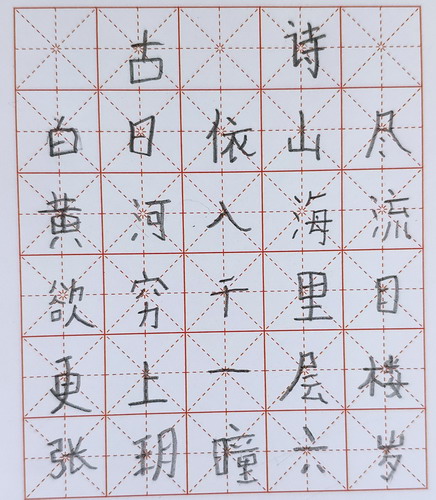 古诗
白日依山尽
黄河入海流
欲穷千里目
更上一层楼
张玥瞳六岁